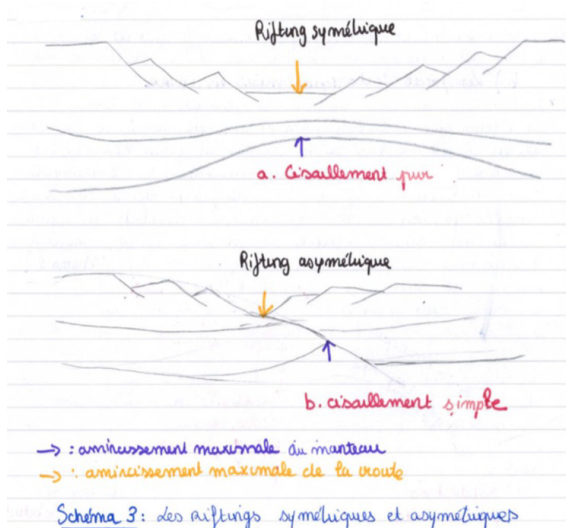 Rifting symétrique
a. Cisaillement pur
Rifting asymétrique
b. cisaillement simple
→ : amincissement maximale du manteau
→ : amincissement maximale de la croute
Schéma 3 : Les riftings symétriques et asymétriques